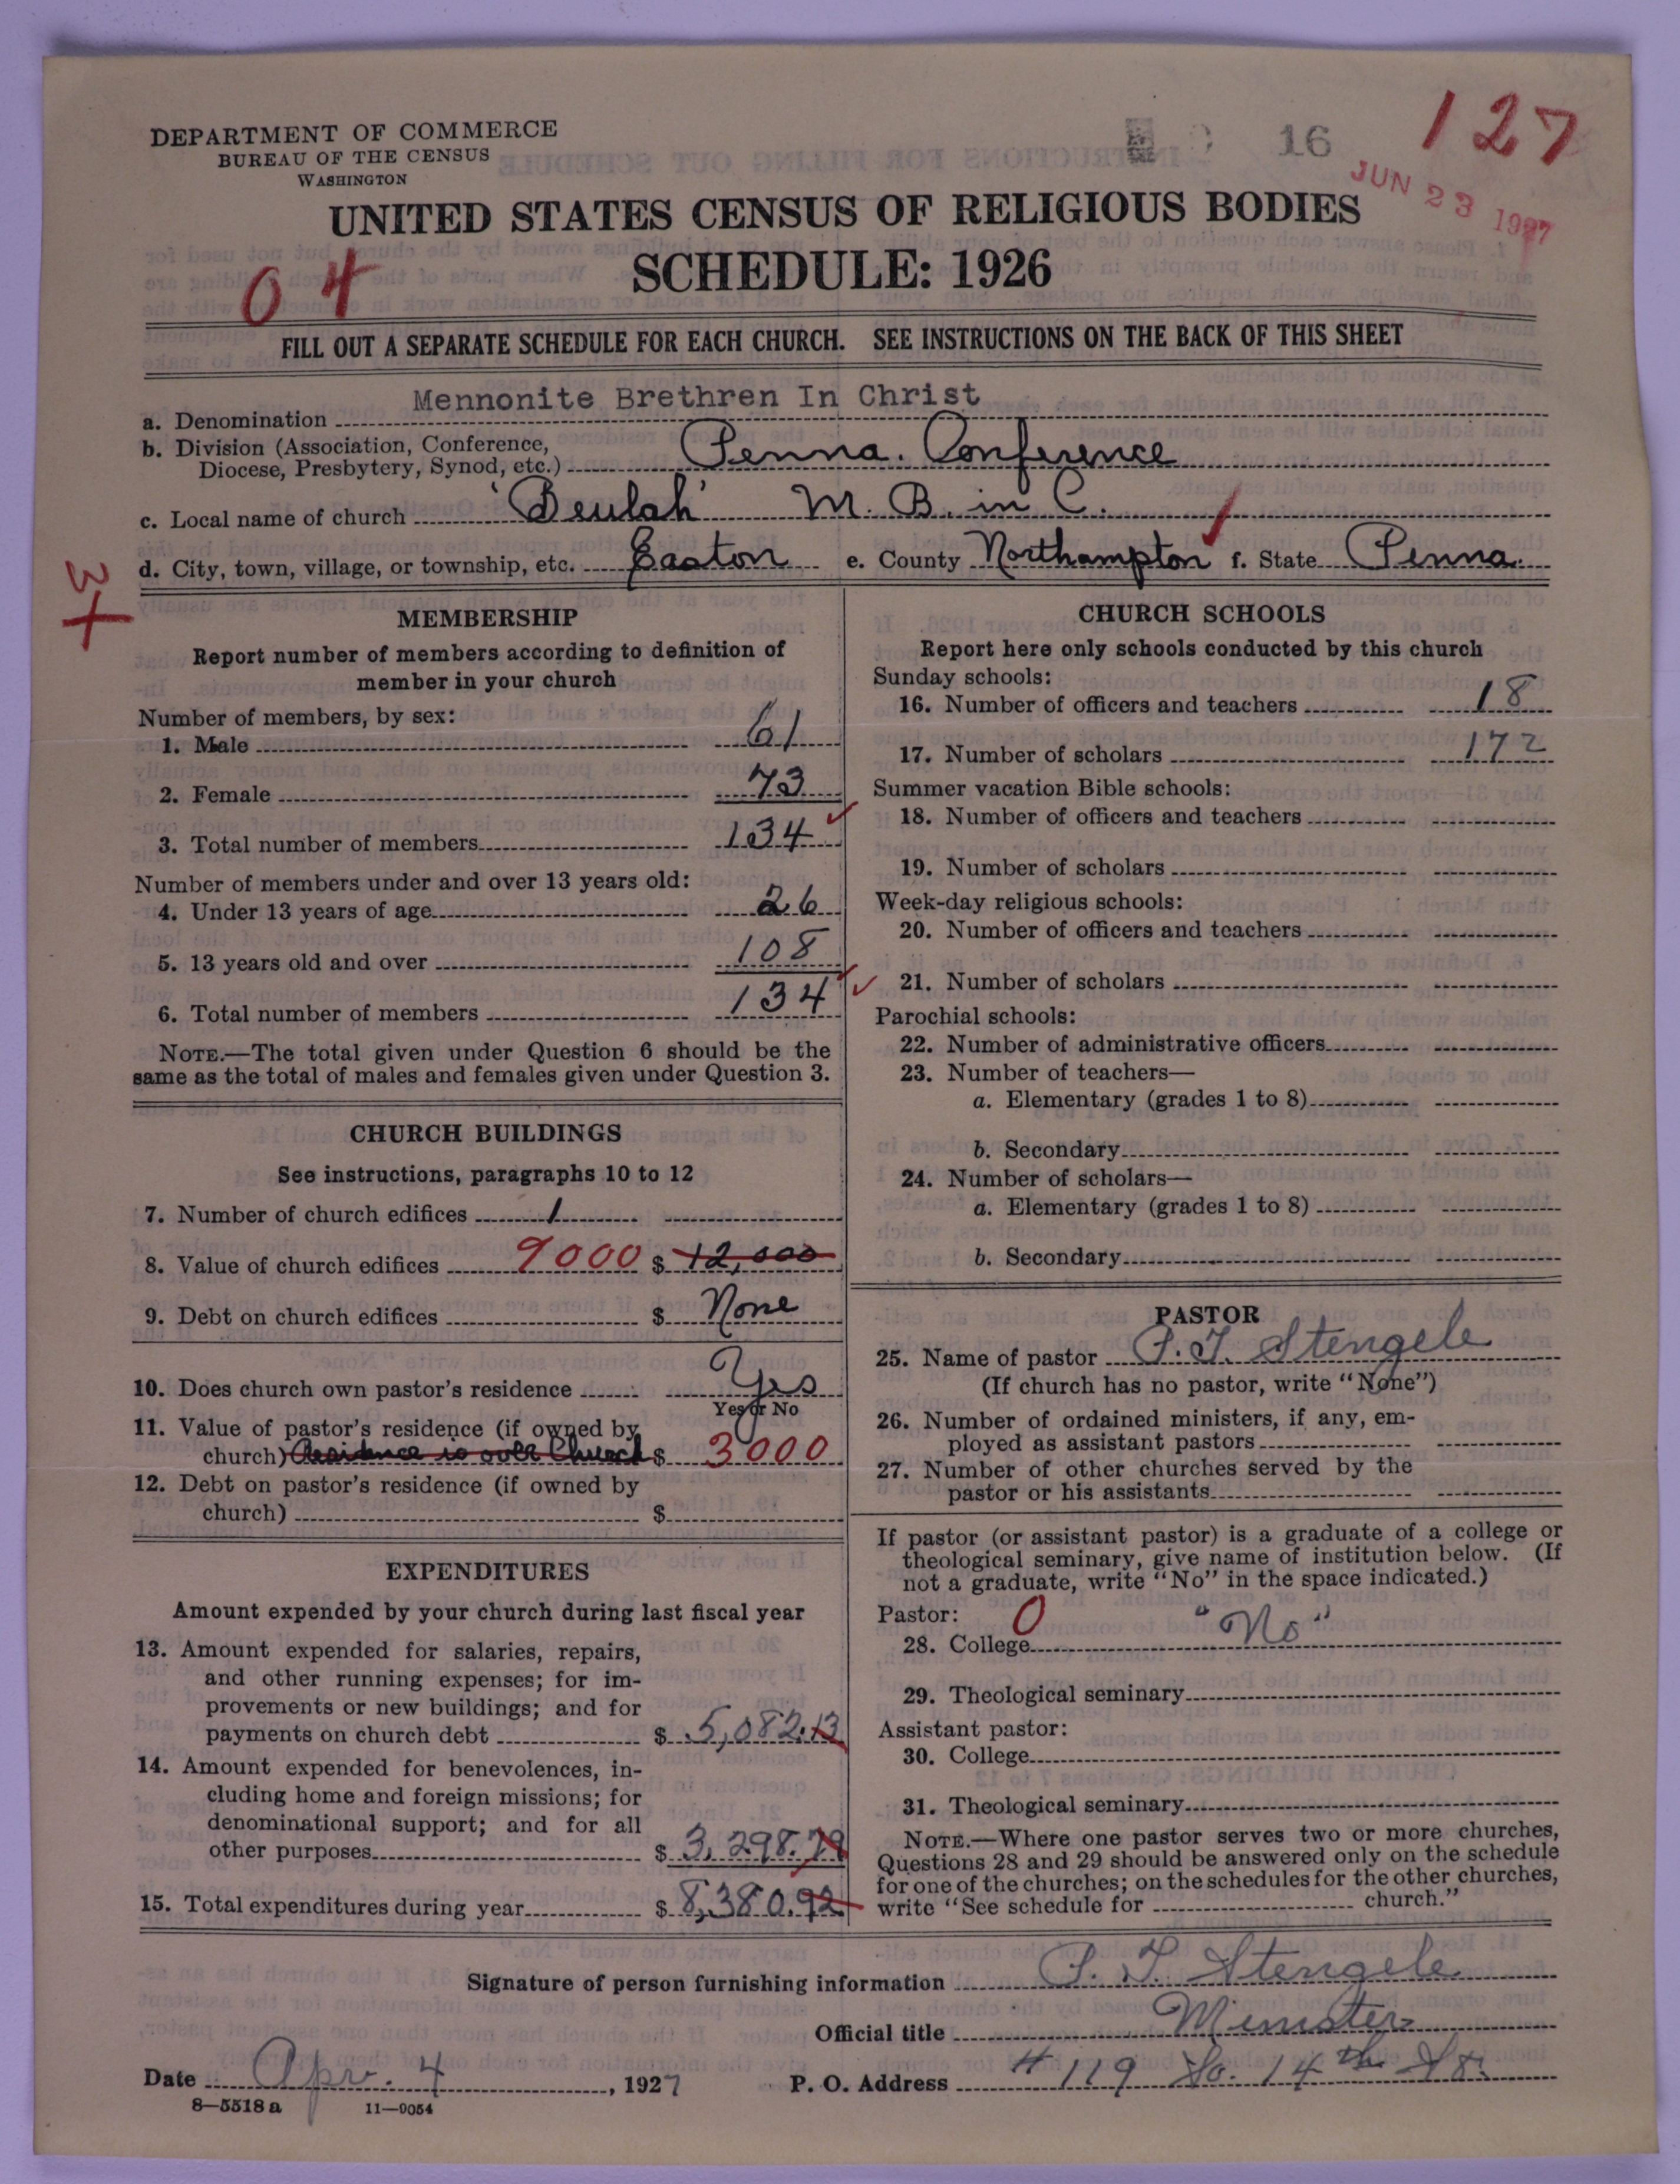 127
16
JUN 23 1927
DEPARTMENT OF COMMERCE
BUREAU OF THE CENSUS
WASHINGTON
UNITED STATES CENSUS OF RELIGIOUS BODIES
SCHEDULE: 1926
04
FILL OUT A SEPARATE SCHEDULE FOR EACH CHURCH. SEE INSTRUCTIONS ON THE BACK OF THIS SHEET
a. Denomination Mennonite Brethren In Christ
b. Division (Association, Conference,
Diocese, Presbytery, Synod, etc.) Penna. Conference
c. Local name of church 'Beulah' M. B. in C.
d. City, town, village, or township, etc. Easton e. County Northampton f. State Penna.
3+
MEMBERSHIP
Report number of members according to definition of
member in your church
Number of members, by sex:
1. Male 61
2. Female 73
3. Total number of members 134
Number of members under and over 13 years old:
4. Under 13 years of age 26
5. 13 years old and over 108
6. Total number of members 134
NOTE.—The total given under Question 6 should be the
same as the total of males and females given under Question 3.
CHURCH BUILDINGS
See instructions, paragraphs 10 to 12
7. Number of church edifices 1
8. Value of church edifices 9000 $ 12,000
9. Debt on church edifices $ None
10. Does church own pastor's residence Yes
Yes or No
11. Value of pastor's residence (if owned by
church) Residence is over Church $ 3000
12. Debt on pastor's residence (if owned by
church) $
EXPENDITURES
Amount expended by your church during last fiscal year
13. Amount expended for salaries, repairs,
and other running expenses; for im-
provements or new buildings; and for
payments on church debt $ 5,082.13
14. Amount expended for benevolences, in-
cluding home and foreign missions; for
denominational support; and for all
other purposes $ 3,298.79
15. Total expenditures during year $ 8,380.92
CHURCH SCHOOLS
Report here only schools conducted by this church
Sunday schools:
16. Number of officers and teachers 18
17. Number of scholars 172
Summer vacation Bible schools:
18. Number of officers and teachers
19. Number of scholars
Week-day religious schools:
20. Number of officers and teachers
21. Number of scholars
Parochial schools:
22. Number of administrative officers
23. Number of teachers—
a. Elementary (grades 1 to 8)
b. Secondary
24. Number of scholars—
a. Elementary (grades 1 to 8)
b. Secondary
PASTOR
25. Name of pastor P. T. Stengele
(If church has no pastor, write "None")
26. Number of ordained ministers, if any, em-
ployed as assistant pastors
27. Number of other churches served by the
pastor or his assistants
If pastor (or assistant pastor) is a graduate of a college or
theological seminary, give name of institution below. (If
not a graduate, write "No" in the space indicated.)
Pastor: 0
28. College "No"
29. Theological seminary
Assistant pastor:
30. College
31. Theological seminary
NOTE.—Where one pastor serves two or more churches,
Questions 28 and 29 should be answered only on the schedule
for one of the churches; on the schedules for the other churches,
write "See schedule for church."
Signature of person furnishing information P. T. Stengele
Official title Minister
Date Apr. 4, 1927 P. O. Address #119 So. 14th St.
8—5518 a 11—9054